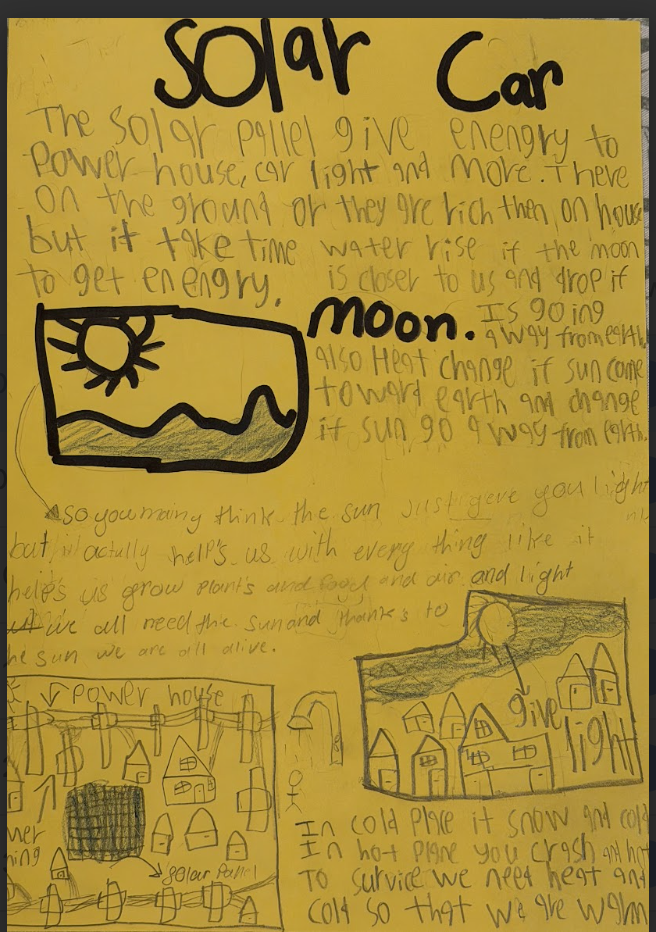 Solar Car
The Solar pallel give enengry to
Power house, car light and more. There
on the ground or they are rich then on house
but it take time
to get enengry.
water rise if the moon
is closer to us and drop if
moon. Is going
away from earth
also Heat change if sun come
toward earth and change
if sun go away from earth.
so you maing think the sun just geve you light
but actully help's us with every thing like it
help's us grow plant's and food and air and light
we all need the sun and thank's to
he sun we are all alive.
Power house
solar Pallel
give
light
In cold Place it snow and cold
In hot plane you crash and hot
To survice we need heat and
cold so that we are warm